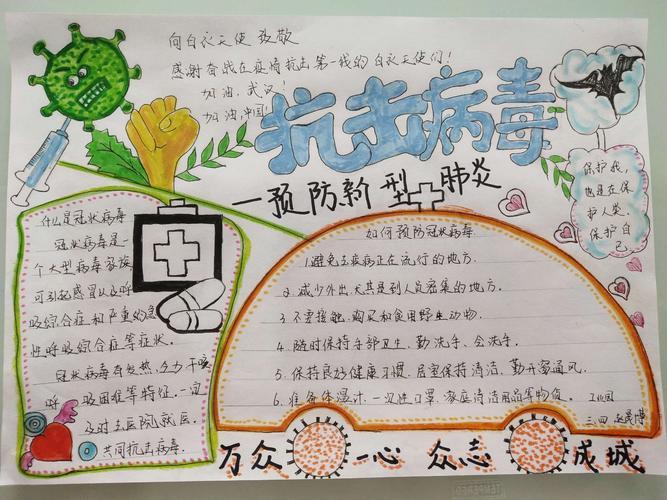 向白衣天使致敬
感谢奋战在疫情抗击第一线的白衣天使们！
加油，武汉！
加油，中国！
抗击病毒
—预防新型肺炎
保护我，
也是在保
护人类。
保护自
己
什么是冠状病毒
冠状病毒是一
个大型病毒家族
可引起感冒以及呼
吸综合症和严重的急
性呼吸综合症等症状。
冠状病毒有发热、乏力、干咳
呼吸困难等特征。一定
及时去医院就医。
共同抗击病毒.
如何预防冠状病毒
1.避免去疾病正在流行的地方.
2.减少外出尤其是到人员密集的地方.
3.不要接触、购买和食用野生动物.
4.随时保持手部卫生、勤洗手、会洗手.
5.保持良好健康习惯.居室保持清洁,勤开窗通风.
6.准备体温计、一次性口罩、家庭清洁用品等物值。
三.四
万众一心 众志成城